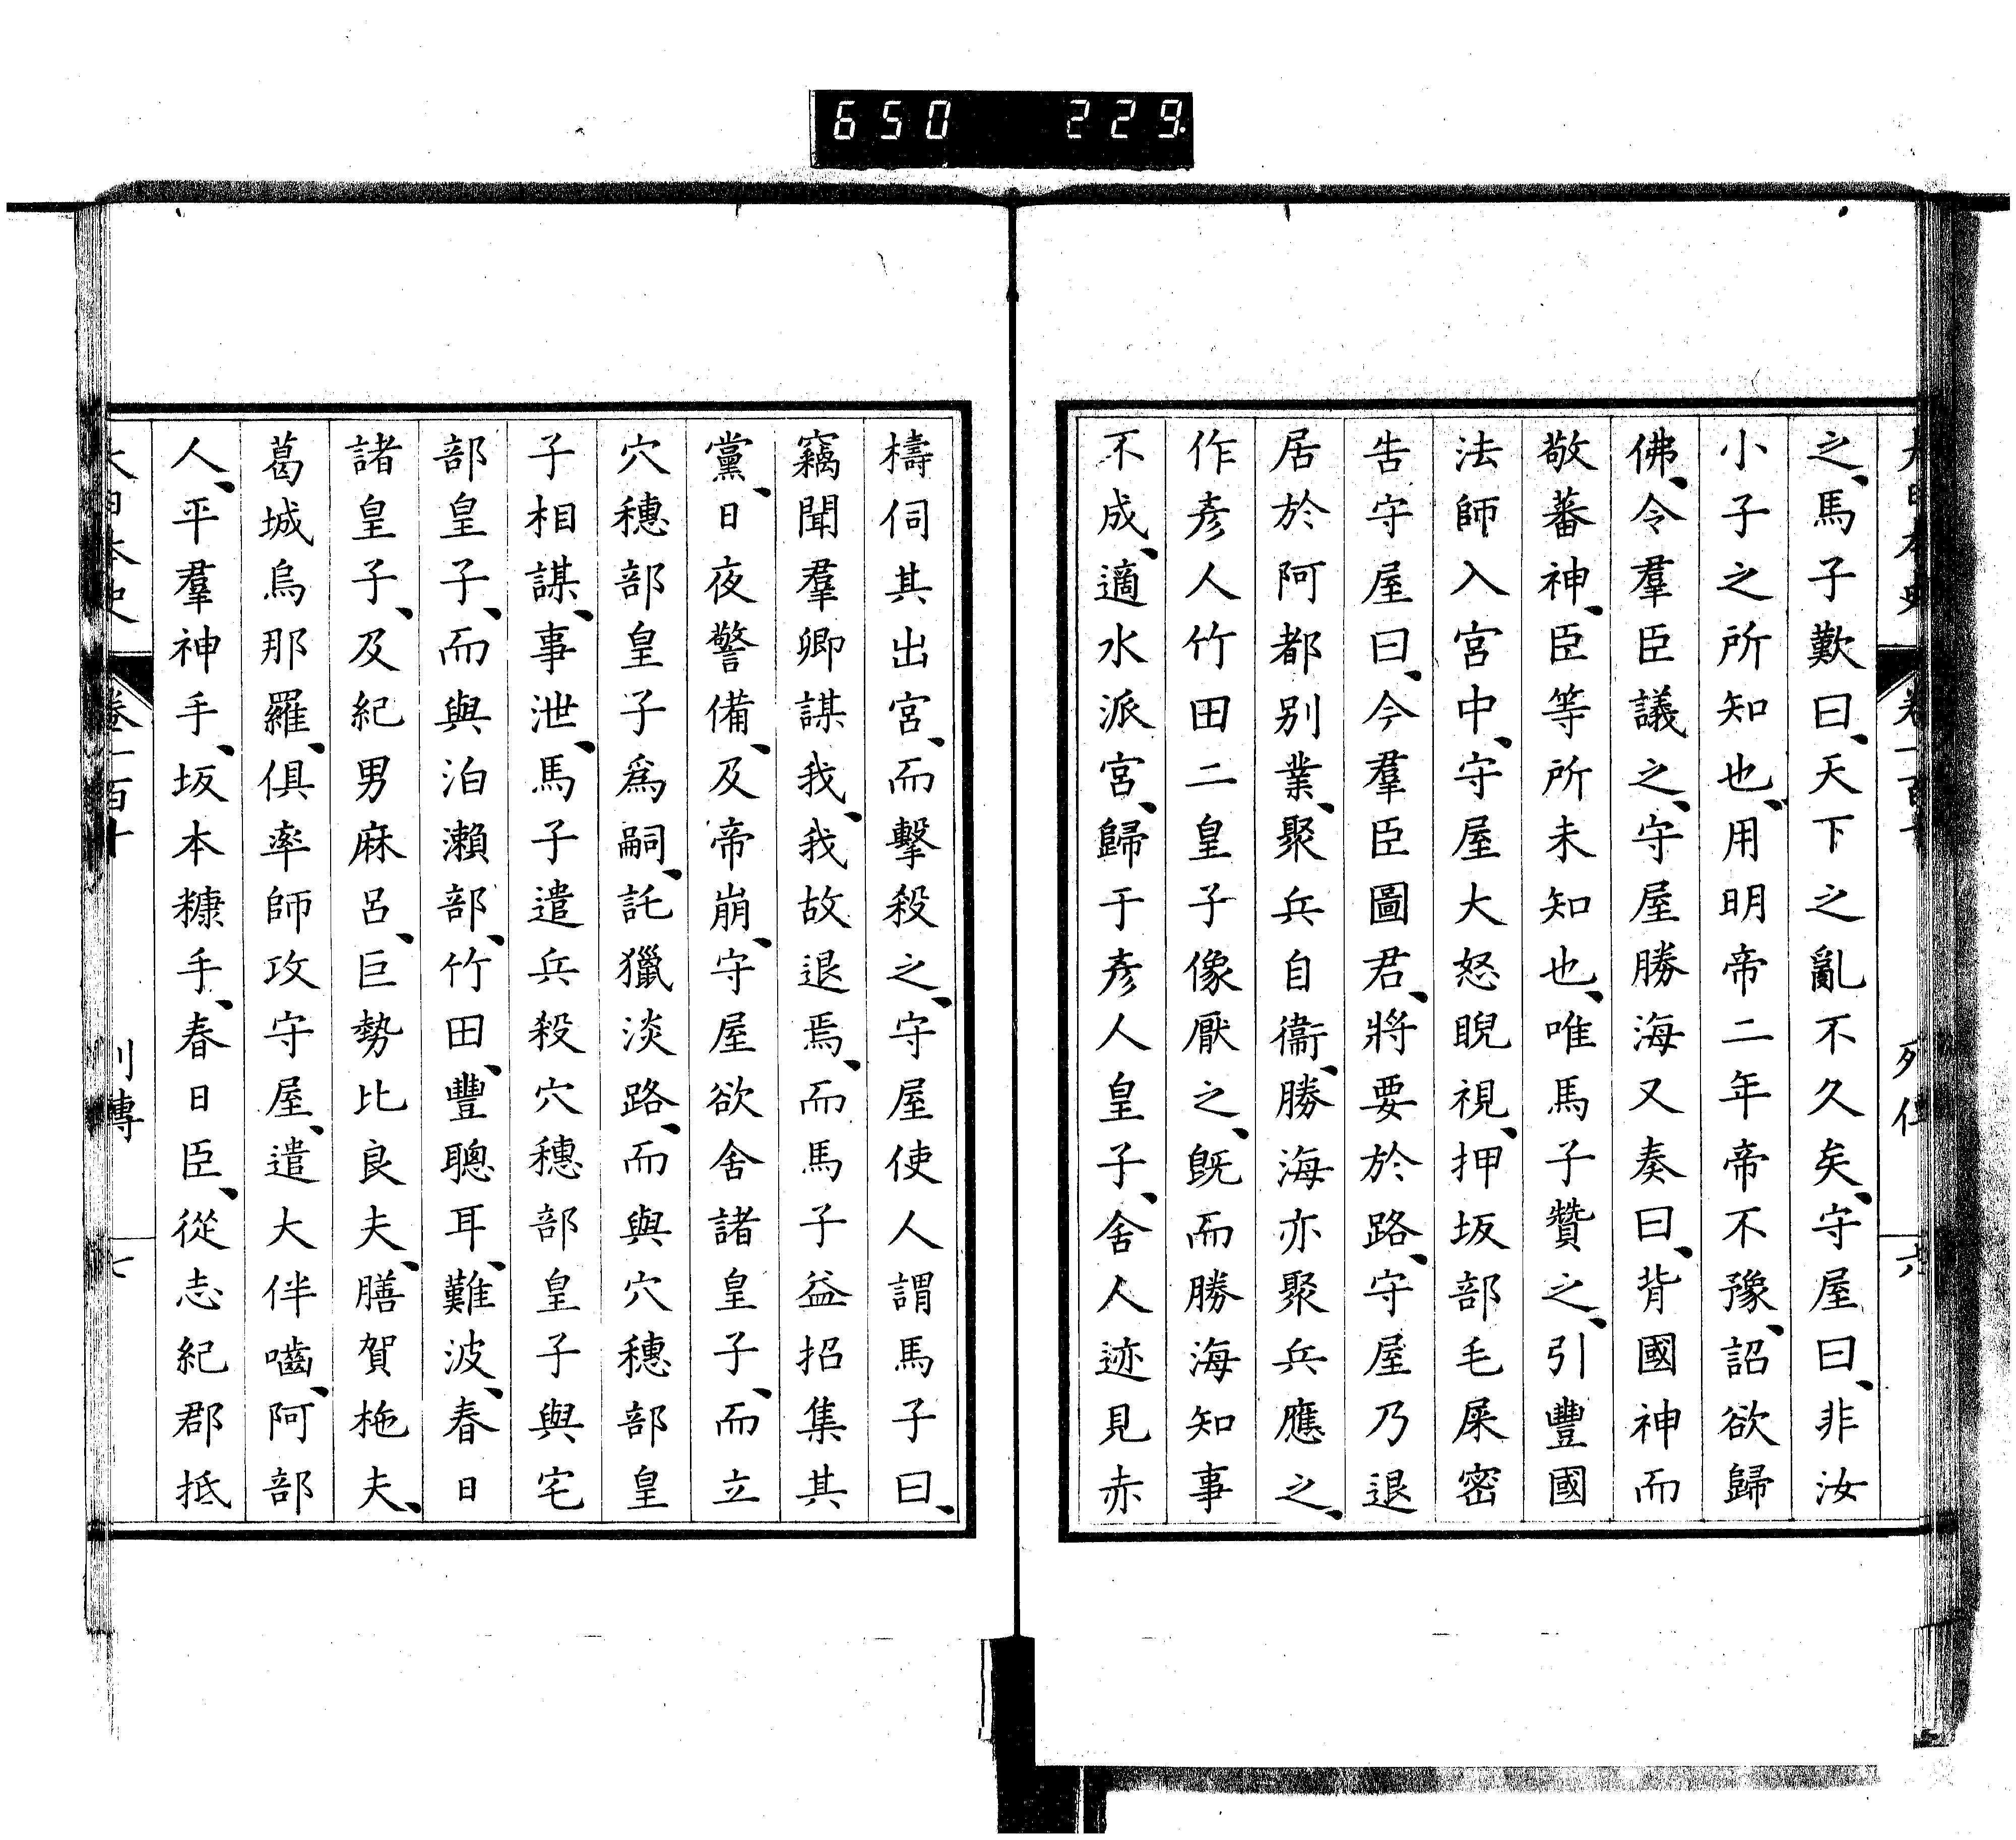 650 229
大日本史 卷一百十 列傳 六
之、馬子歎曰、天下之亂不久矣、守屋曰、非汝
小子之所知也、用明帝二年帝不豫、詔欲歸
佛、令羣臣議之、守屋勝海又奏曰、背國神而
敬蕃神、臣等所未知也、唯馬子贊之、引豐國
法師入宮中、守屋大怒睨視、押坂部毛屎密
告守屋曰、今羣臣圖君、將要於路、守屋乃退
居於阿都別業、聚兵自衞、勝海亦聚兵應之、
作彥人竹田二皇子像厭之、既而勝海知事
不成、適水派宮、歸于彥人皇子、舍人迹見赤
檮伺其出宮、而擊殺之、守屋使人謂馬子曰、
竊聞羣卿謀我、我故退焉、而馬子益招集其
黨、日夜警備、及帝崩、守屋欲舍諸皇子、而立
穴穗部皇子爲嗣、託獵淡路、而與穴穗部皇
子相謀、事泄、馬子遣兵殺穴穗部皇子與宅
部皇子、而與泊瀨部、竹田、豐聰耳、難波、春日
諸皇子、及紀男麻呂、巨勢比良夫、膳賀柂夫、
葛城烏那羅、俱率師攻守屋、遣大伴嚙、阿部
人、平羣神手、坂本糠手、春日臣、從志紀郡抵
大日本史 卷一百十 列傳 七